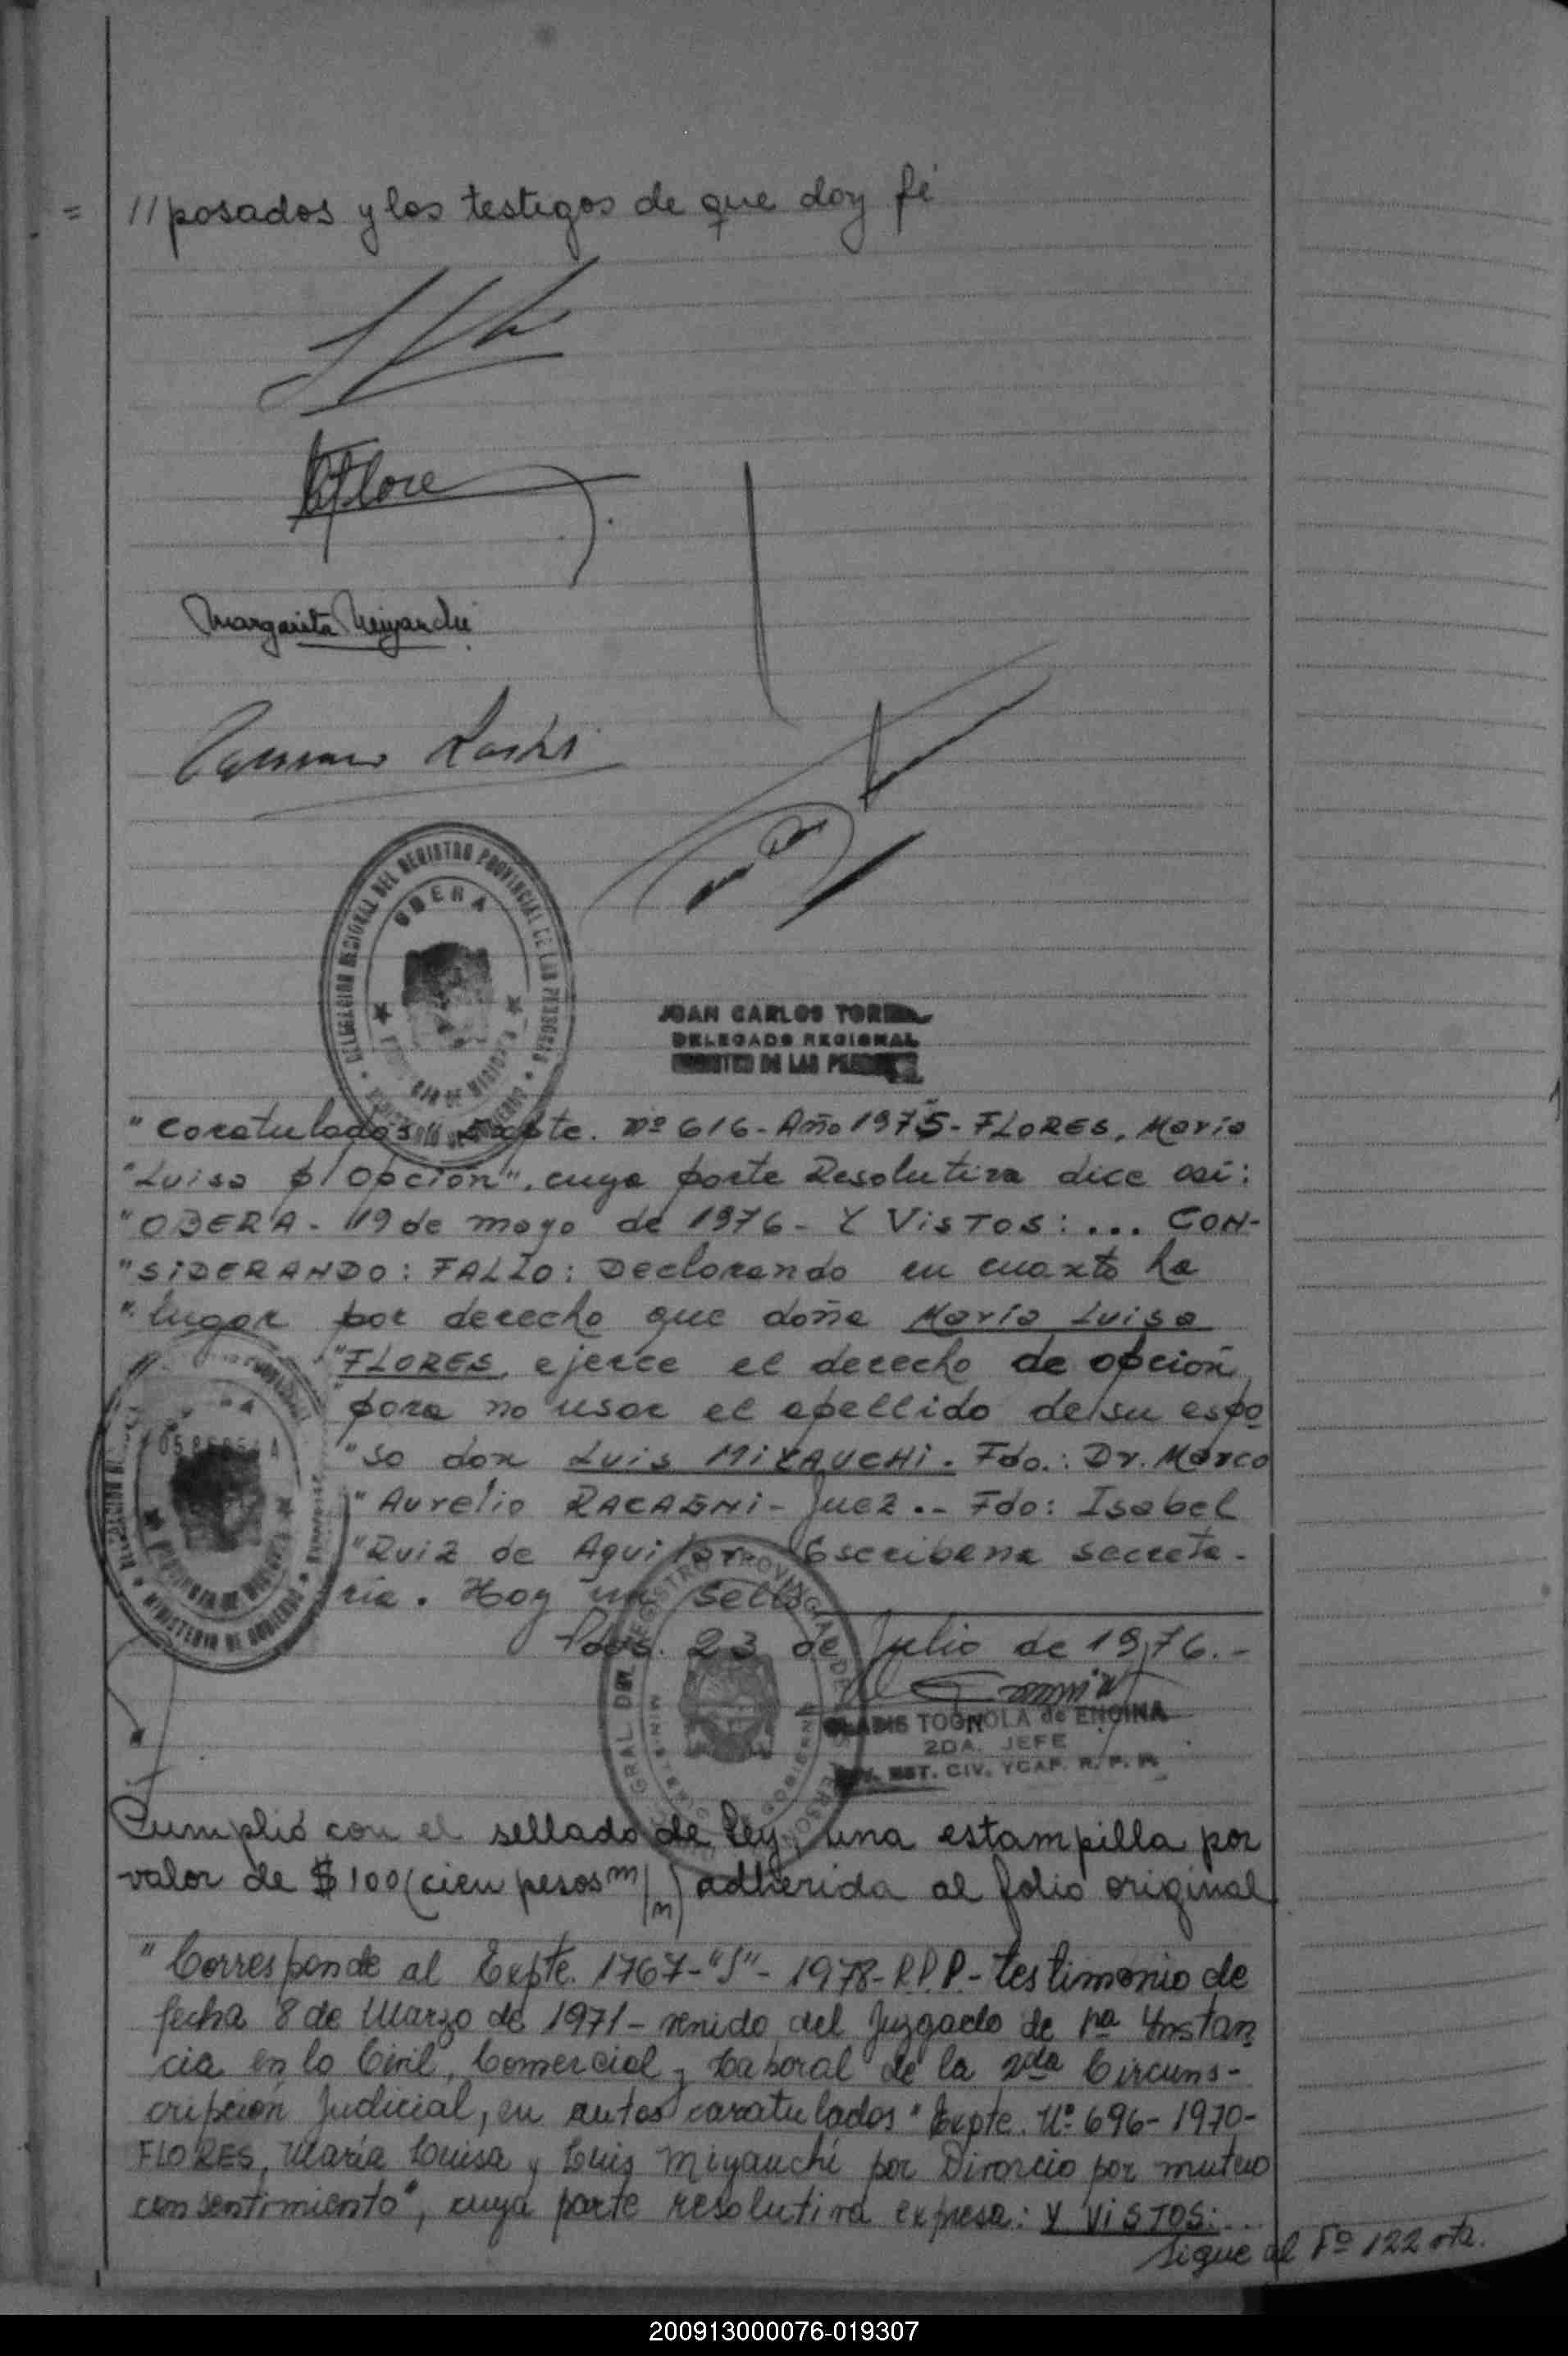 = //posados y los testigos de que doy fé
Flore
Margarita Miyauchi
DELEGACION REGIONAL DEL REGISTRO PROVINCIAL DE LAS PERSONAS
OBERA
JUAN CARLOS
DELEGADO REGIONAL
DE LAS
"Caratulados" Expte. Nº 616 - Año 1975 - FLORES, María
"Luisa p/ Opción", cuya parte Resolutiva dice así:
"OBERA - 19 de mayo de 1976 - Y VisTos: ... CON-
"SIDERANDO: FALLO: Declarando en cuanto ha
"lugar por derecho que doña María Luisa
"FLORES, ejerce el derecho de opción
"para no usar el apellido de su espo
"so don Luis MIYAUCHI. Fdo.: Dr. Marco
"Aurelio RACAGNI - Juez .- Fdo: Isabel
"Ruiz de Aguilar Escribana Secreta-
ria. Hay un sello
Pdas. 23 de Julio de 1976.-
MINISTERIO DE GOBIERNO
GLADIS TOGNOLA de ENCINA
2DA. JEFE
EST. CIV. Y CAP. R. P. P.
Cumplió con el sellado de Ley, una estampilla por
valor de $ 100 (cien pesos m/n) adherida al folio original
"Corresponde al Expte. 1767-"S"- 1978-R.P.P.- testimonio de
fecha 8 de Marzo de 1971 - venido del Juzgado de 1ra Instan
cia en lo Civil, Comercial y Laboral de la 2da Circuns-
cripción Judicial, en autos caratulados "Expte. Nº 696- 1970-
FLORES, María Luisa y Luis Miyauchi por Divorcio por mutuo
consentimiento", cuya parte resolutiva expresa: Y VISTOS: ...
Sigue al Fº 122 vta.
200913000076-019307